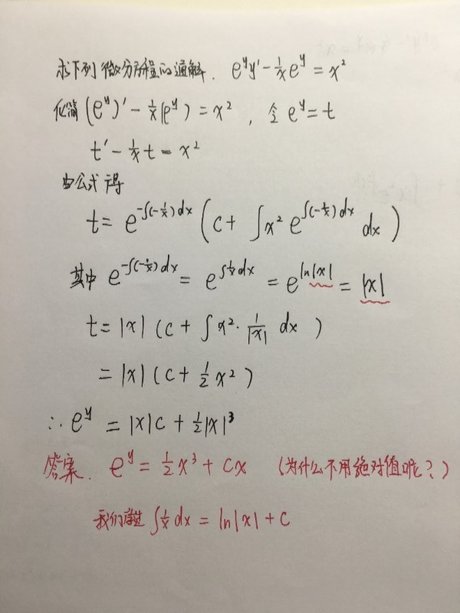 求下列微分方程的通解. e^y y' - 1/x e^y = x²
化简 (e^y)' - 1/x (e^y) = x² , 令 e^y = t
t' - 1/x t = x²
由公式得
t = e^{-∫(-1/x)dx} ( c + ∫ x² e^{∫(-1/x)dx} dx )
其中 e^{-∫(-1/x)dx} = e^{∫1/x dx} = e^{ln|x|} = |x|
t = |x| ( c + ∫ x² · 1/|x| dx )
= |x| ( c + 1/2 x² )
∴ e^y = |x| c + 1/2 |x|³
答案. e^y = 1/2 x³ + cx (为什么不用绝对值呢?)
我们学过 ∫ 1/x dx = ln|x| + c